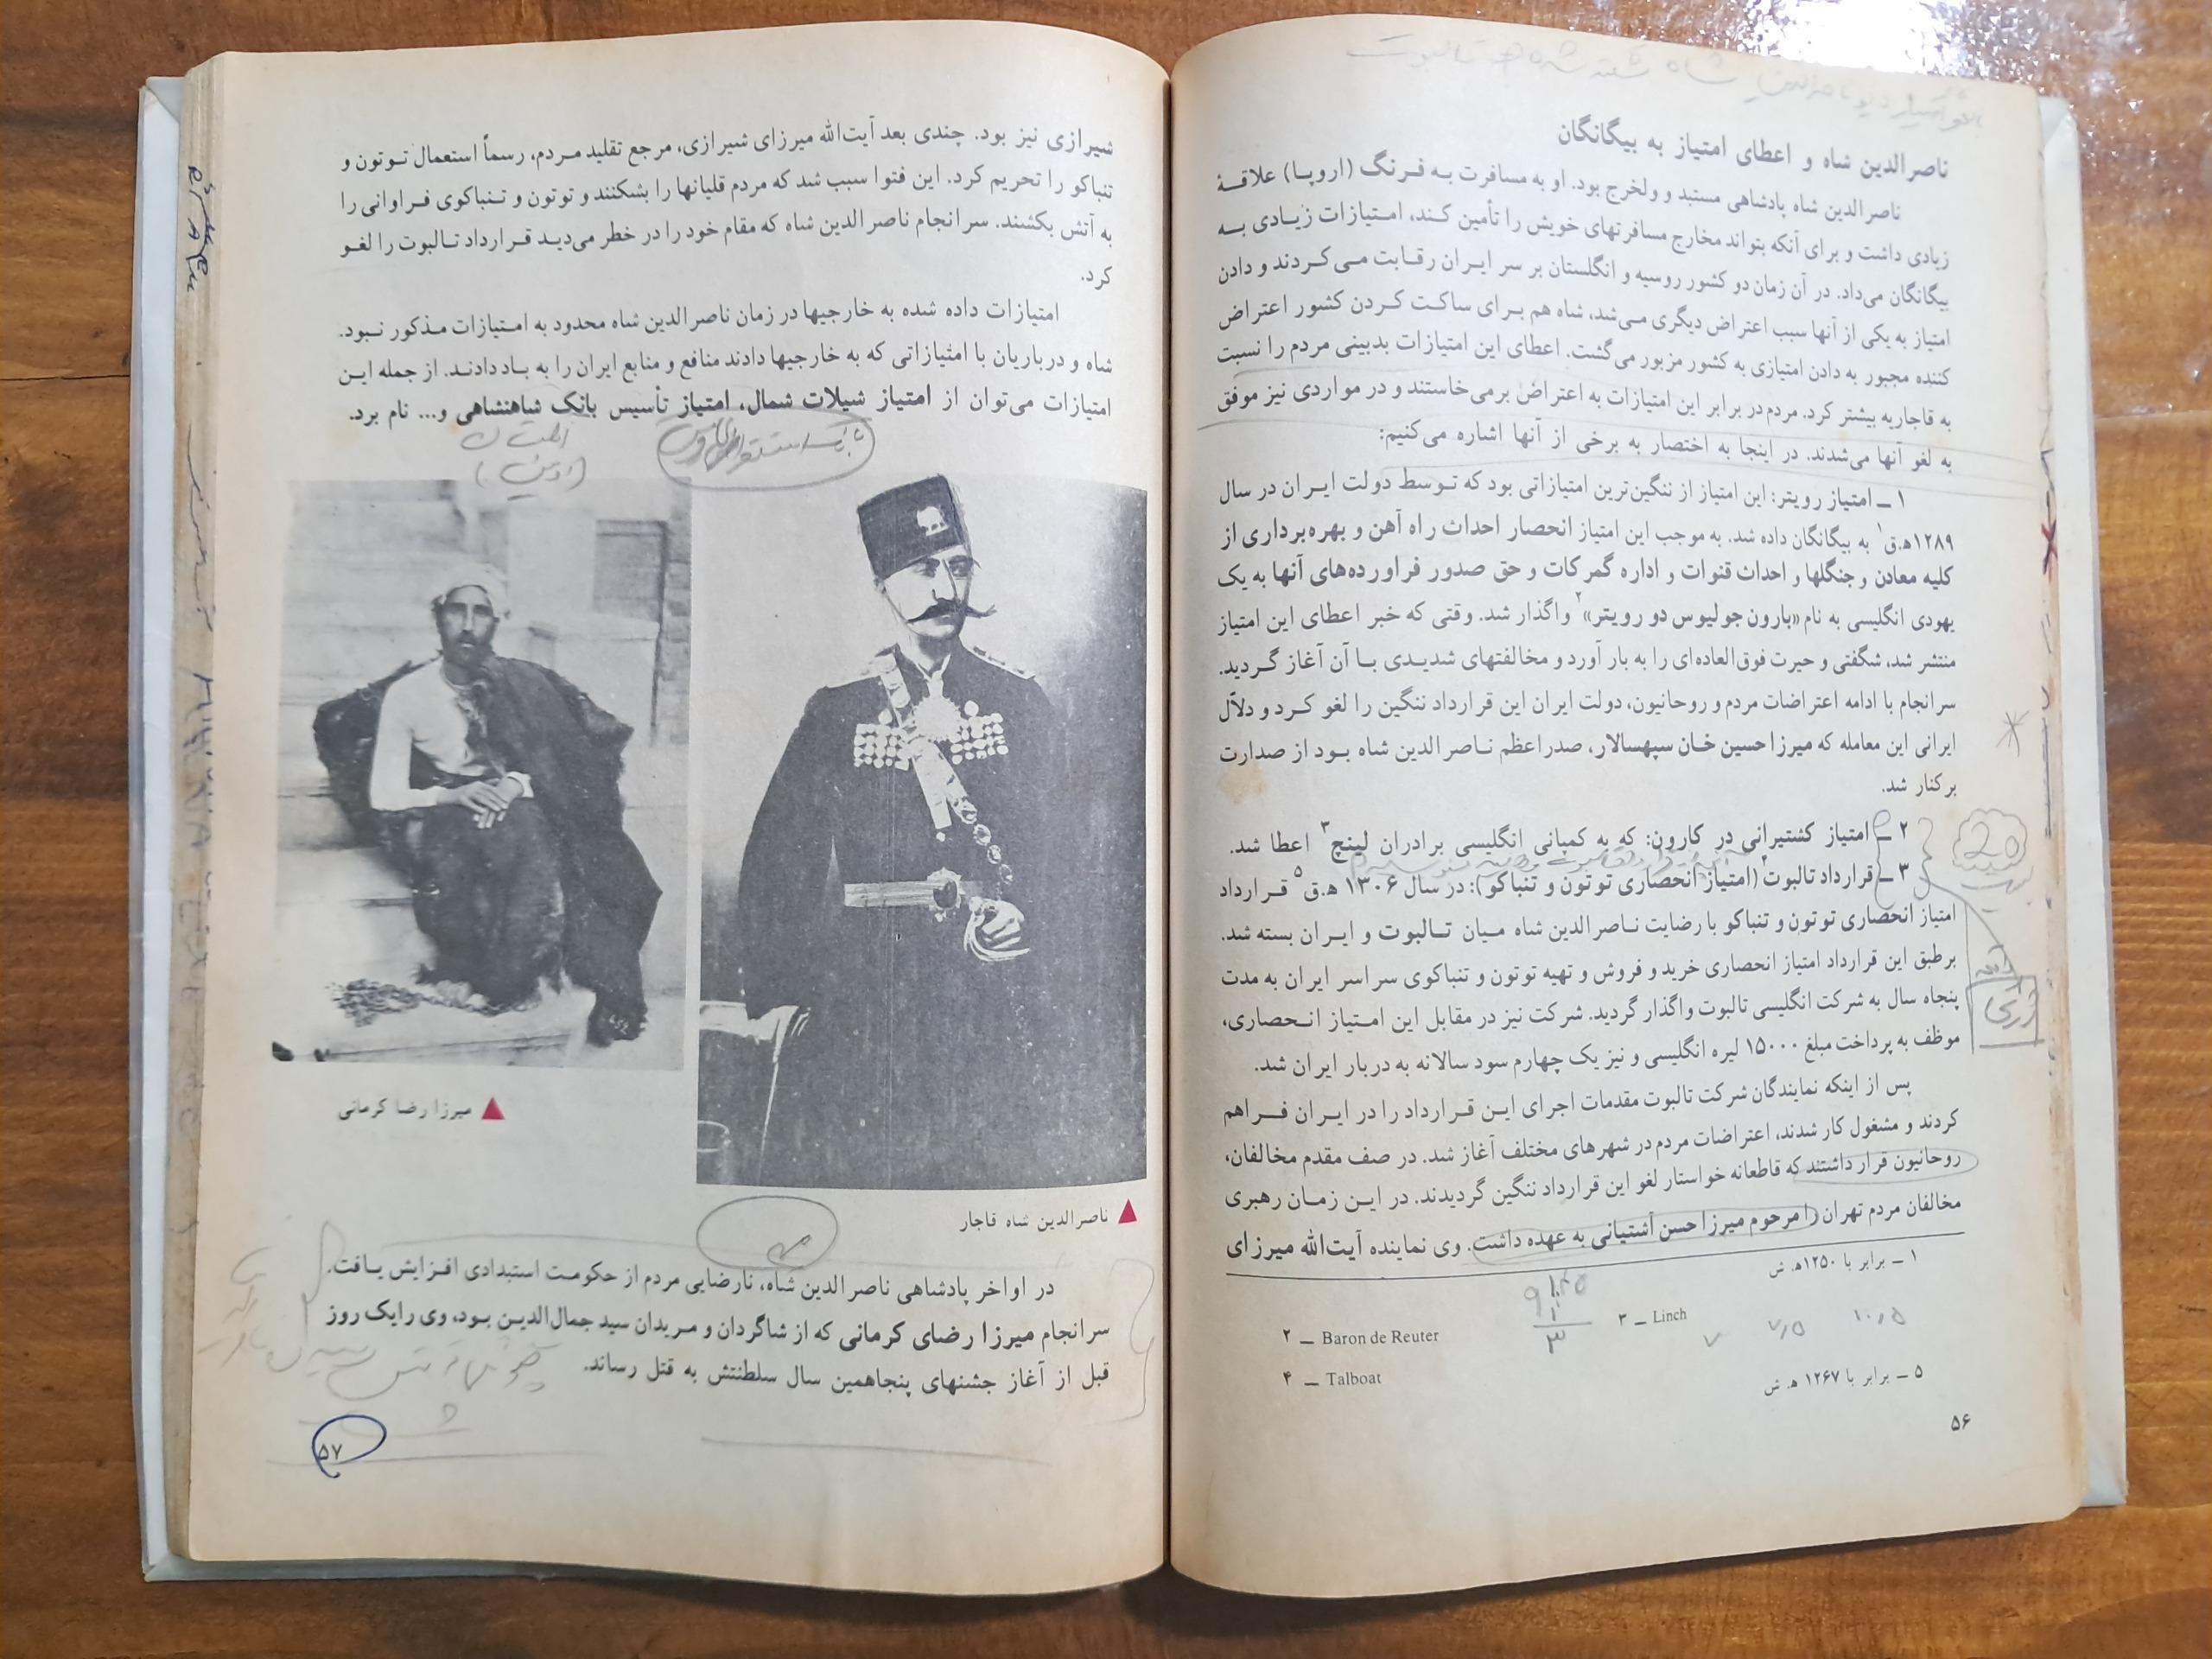 ناصرالدین شاه و اعطای امتیاز به بیگانگان
ناصرالدین شاه پادشاهی مستبد و ولخرج بود. او به مسافرت به فرنگ (اروپا) علاقۀ
زیادی داشت و برای آنکه بتواند مخارج مسافرتهای خویش را تأمین کند، امتیازات زیادی به
بیگانگان می‌داد. در آن زمان دو کشور روسیه و انگلستان بر سر ایران رقابت می‌کردند و دادن
امتیاز به یکی از آنها سبب اعتراض دیگری می‌شد، شاه هم برای ساکت کردن کشور اعتراض
کننده مجبور به دادن امتیازی به کشور مزبور می‌گشت. اعطای این امتیازات بدبینی مردم را نسبت
به قاجاریه بیشتر کرد. مردم در برابر این امتیازات به اعتراض برمی‌خاستند و در مواردی نیز موفق
به لغو آنها می‌شدند. در اینجا به اختصار به برخی از آنها اشاره می‌کنیم:
۱ ــ امتیاز رویتر: این امتیاز از ننگین‌ترین امتیازاتی بود که توسط دولت ایران در سال
۱۲۸۹ه‍.ق۱ به بیگانگان داده شد. به موجب این امتیاز انحصار احداث راه آهن و بهره‌برداری از
کلیه معادن و جنگلها و احداث قنوات و اداره گمرکات و حق صدور فرآورده‌های آنها به یک
یهودی انگلیسی به نام «بارون جولیوس دو رویتر»۲ واگذار شد. وقتی که خبر اعطای این امتیاز
منتشر شد، شگفتی و حیرت فوق‌العاده‌ای را به بار آورد و مخالفتهای شدیدی با آن آغاز گردید.
سرانجام با ادامه اعتراضات مردم و روحانیون، دولت ایران این قرارداد ننگین را لغو کرد و دلاّل
ایرانی این معامله که میرزا حسین خان سپهسالار، صدراعظم ناصرالدین شاه بود از صدارت
برکنار شد.
۲ ــ امتیاز کشتیرانی در کارون: که به کمپانی انگلیسی برادران لینچ۳ اعطا شد.
۳ ــ قرارداد تالبوت۴ (امتیاز انحصاری توتون و تنباکو): در سال ۱۳۰۶ ه‍.ق۵ قرارداد
امتیاز انحصاری توتون و تنباکو با رضایت ناصرالدین شاه میان تالبوت و ایران بسته شد.
برطبق این قرارداد امتیاز انحصاری خرید و فروش و تهیه توتون و تنباکوی سراسر ایران به مدت
پنجاه سال به شرکت انگلیسی تالبوت واگذار گردید. شرکت نیز در مقابل این امتیاز انحصاری،
موظف به پرداخت مبلغ ۱۵۰۰۰ لیره انگلیسی و نیز یک چهارم سود سالانه به دربار ایران شد.
پس از اینکه نمایندگان شرکت تالبوت مقدمات اجرای این قرارداد را در ایران فراهم
کردند و مشغول کار شدند، اعتراضات مردم در شهرهای مختلف آغاز شد. در صف مقدم مخالفان،
روحانیون قرار داشتند که قاطعانه خواستار لغو این قرارداد ننگین گردیدند. در این زمان رهبری
مخالفان مردم تهران را مرحوم میرزا حسن آشتیانی به عهده داشت. وی نماینده آیت‌الله میرزای
۱ ــ برابر با ۱۲۵۰ه‍. ش
۲ ــ Baron de Reuter
۳ ــ Linch
۴ ــ Talboat
۵ ــ برابر با ۱۲۶۷ ه‍. ش
۱۰٫۵
۷٫۵
۷
20
۵۶
شیرازی نیز بود. چندی بعد آیت‌الله میرزای شیرازی، مرجع تقلید مردم، رسماً استعمال توتون و
تنباکو را تحریم کرد. این فتوا سبب شد که مردم قلیانها را بشکنند و توتون و تنباکوی فراوانی را
به آتش بکشند. سرانجام ناصرالدین شاه که مقام خود را در خطر می‌دید قرارداد تالبوت را لغو
کرد.
امتیازات داده شده به خارجیها در زمان ناصرالدین شاه محدود به امتیازات مذکور نبود.
شاه و درباریان با امتیازاتی که به خارجیها دادند منافع و منابع ایران را به باد دادند. از جمله این
امتیازات می‌توان از امتیاز شیلات شمال، امتیاز تأسیس بانک شاهنشاهی و... نام برد.
میرزا رضا کرمانی
ناصرالدین شاه قاجار
در اواخر پادشاهی ناصرالدین شاه، نارضایی مردم از حکومت استبدادی افزایش یافت.
سرانجام میرزا رضای کرمانی که از شاگردان و مریدان سید جمال‌الدین بود، وی را یک روز
قبل از آغاز جشنهای پنجاهمین سال سلطنتش به قتل رساند.
۵۷